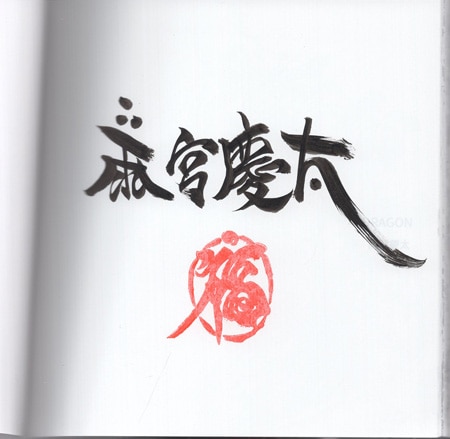 雨宮慶太
DRAGON
福